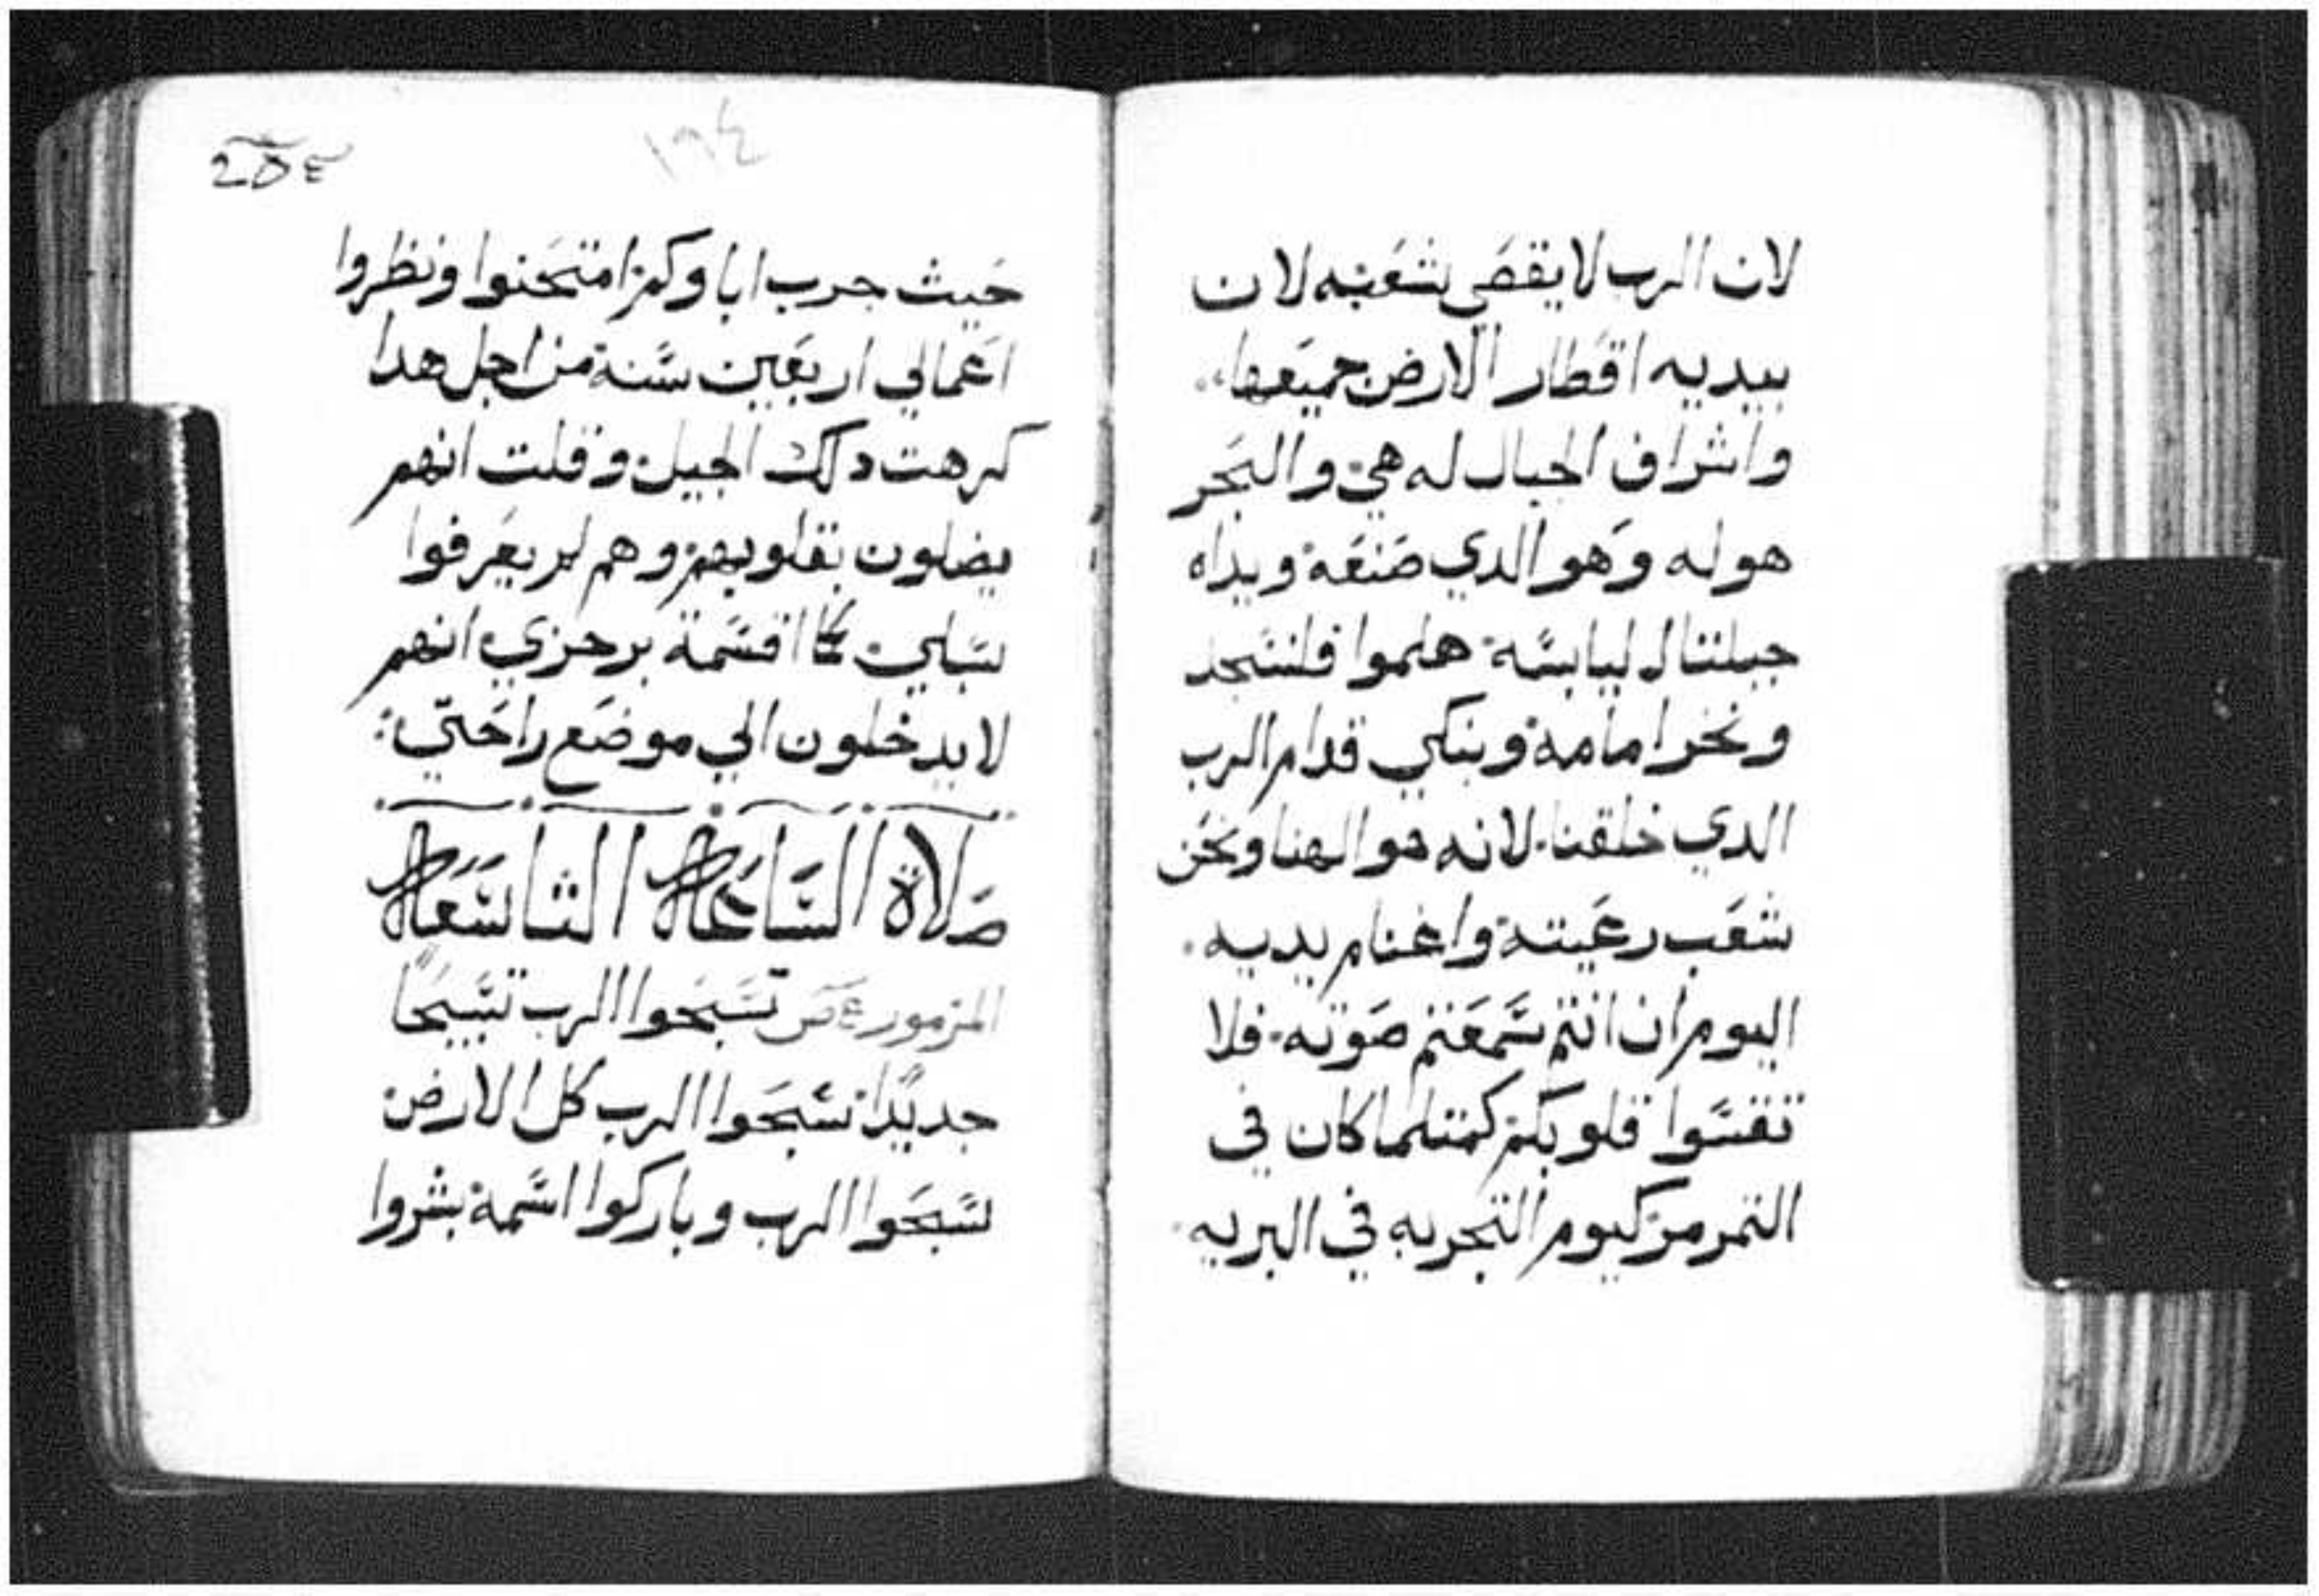 لان الرب لا يقصي شعبه لان
بيديه اقطار الارض جميعها
واشراف الجبال له هي والبحر
هو له وهو الدي صنعة ويداه
جبلتا ليابسة هلموا فلنسجد
ونخر امامة ونبكي قدام الرب
الدي خلقنا لانه هو الهنا ونحن
شعب رعيتة واغنام يديه
اليوم ان انتم سمعتم صوته فلا
تقسوا قلوبكم كمتلما كان في
التمرمر كيوم التجربه في البريه
١٩٤
حيث جرب اباوكم امتحنوا ونظروا
اعمالي اربعين سنة من اجل هدا
كرهت دلك الجيل وقلت انهم
يضلون بقلوبهم وهم لم يعرفوا
سبلي كما اقسمة برجزي انهم
لا يدخلون الي موضع راحتي
صلاة الساعة التاسعة
المزمور تسبحوا الرب تسبيحا
جديدا سبحوا الرب كل الارض
سبحوا الرب وباركوا اسمة بشروا